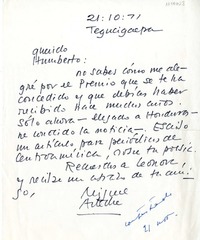 21.10.71
Tegucigalpa
querido
Humberto:
no sabes cómo me ale-
gré por el Premio que se te ha
concedido y que debías haber
recibido hace muchos años.
Sólo ahora - llegado a Honduras-
he sabido la noticia. Escribo
un artículo, para periódicos de
Centroamérica, sobre tu poesía.
Recuerdos a Leonora,
y recibe un abrazo de tu ami-
go,
Miguel
Arteche
21 nov.